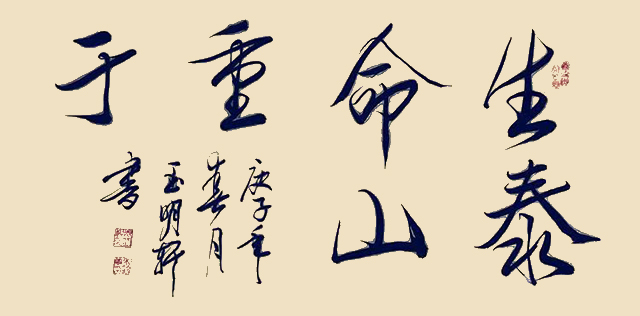 生命重于
泰山
庚子年
春月
玉明轩
书